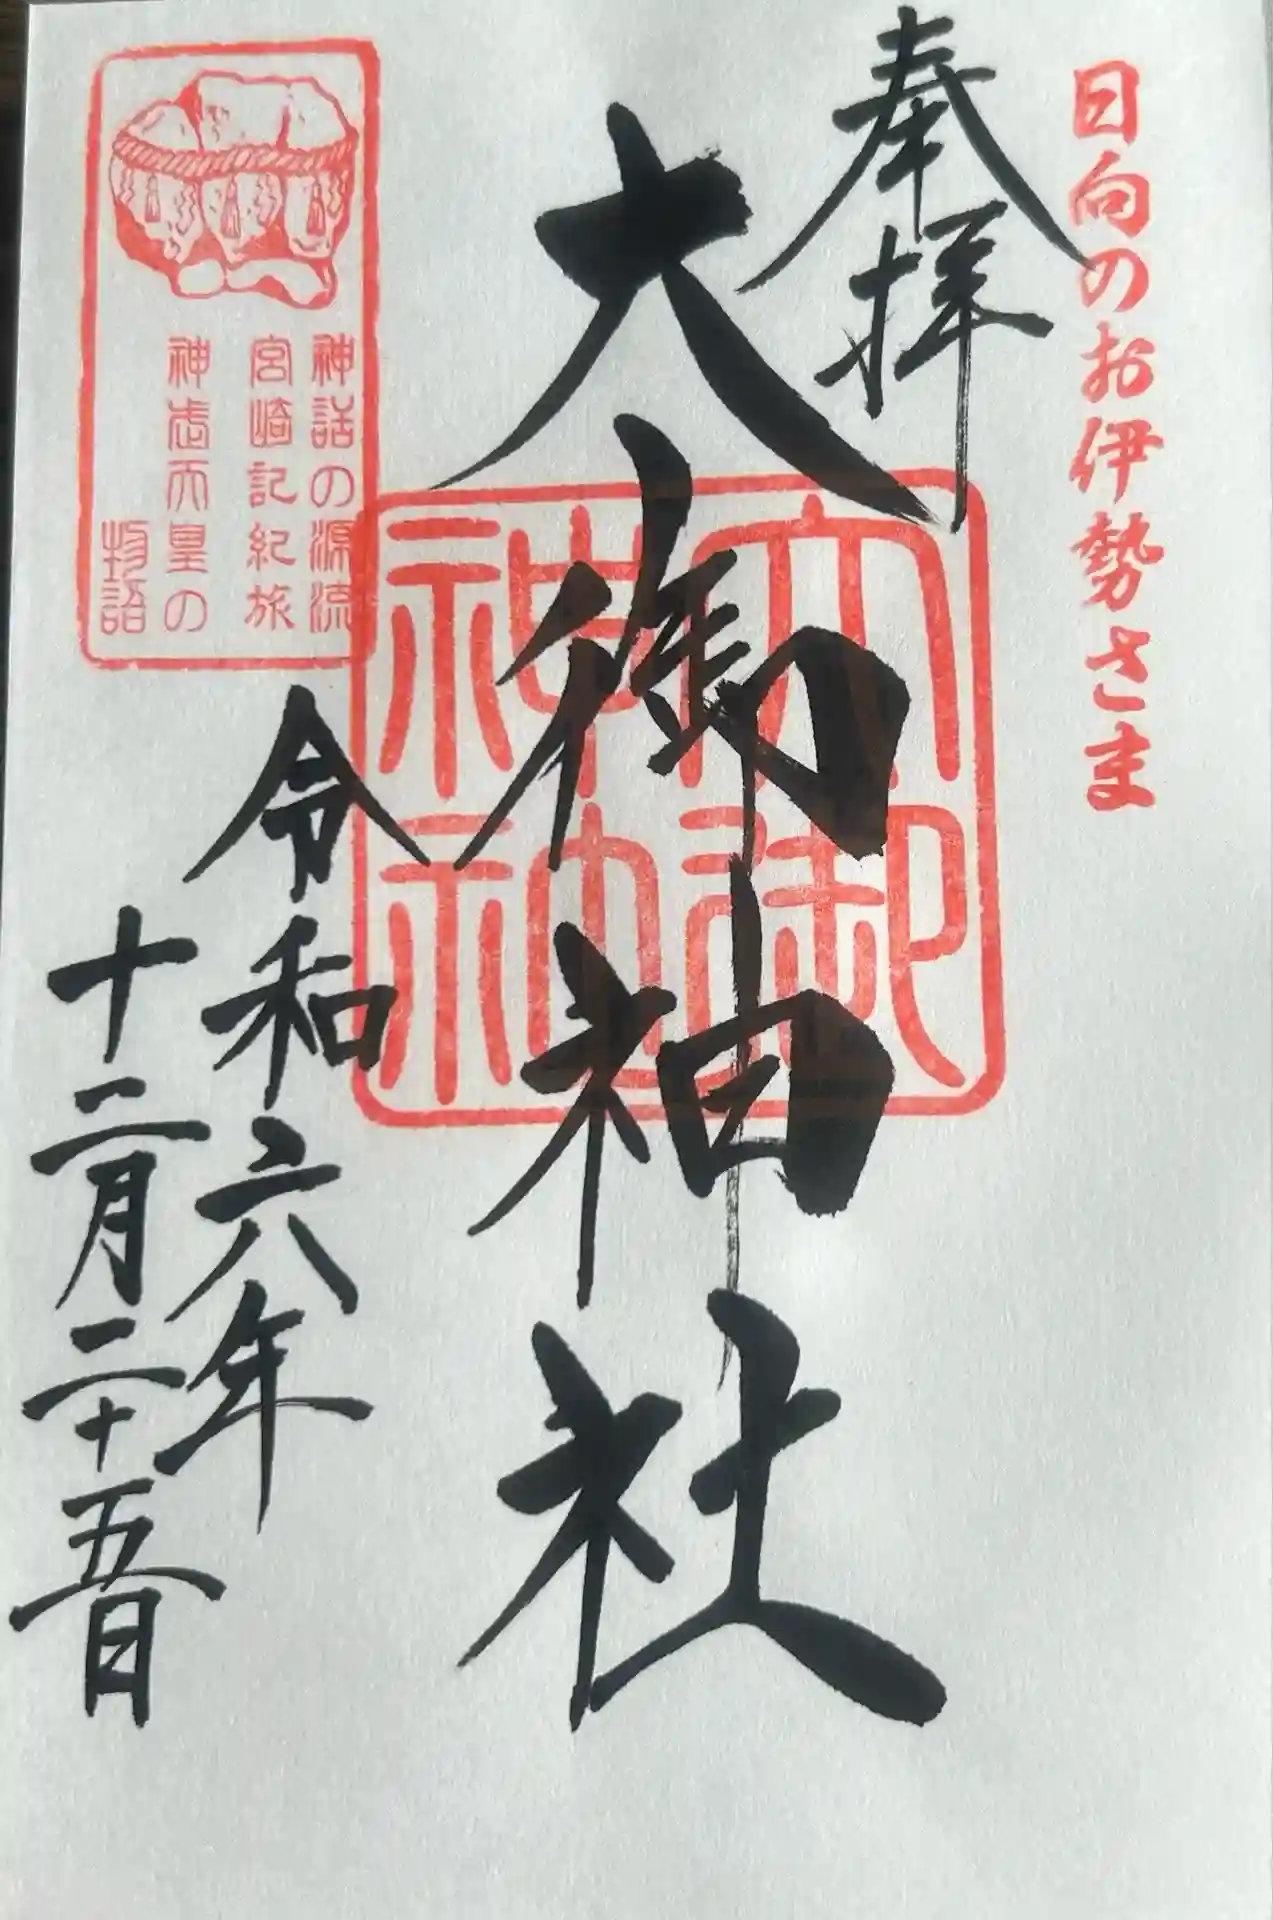 日向のお伊勢さま
奉拝
大御神社
大御
神社
神話の源流
宮崎記紀旅
神武天皇の
物語
令和六年
十二月二十五日